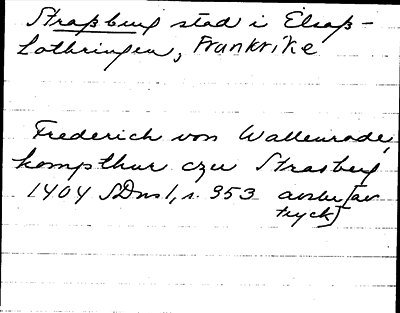 Straßburg stad i Elsaß-
Lothringen, Frankrike
Frederich von Wallenrade,
kompthur czu Strasberg,
1404 SDns 1, s. 953 avskr [av
tryck]